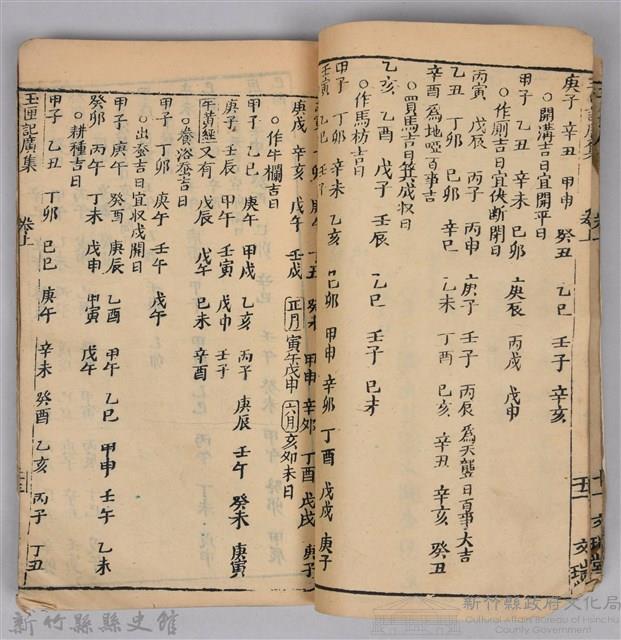 庚子 辛丑 甲申 癸丑 乙巳 壬子 辛亥
○開溝吉日宜開平日
甲子 乙丑 辛未 己卯 庚辰 丙戌 戊申
○作廁吉日宜伏断閉日
丙寅 戊辰 丙子 丙申 庚子 壬子 丙辰 為天聾日百事大吉
乙丑 丁卯 己卯 辛巳 乙未 丁酉 己亥 辛丑 辛亥 癸丑
辛酉為地啞百事吉
○買馬吉日并成收日
乙亥 乙酉 戊子 壬辰 乙巳 壬子 己未
○作馬枋吉日
甲子 丁卯 辛未 乙亥 己卯 甲申 辛卯 丁酉 戊戌 庚子
庚戌 辛亥 戊午 壬戌 正月 寅午戌申 六月 亥卯未日
○作牛欄吉日
甲子 乙巳 庚午 甲戌 乙亥 丙子 庚辰 壬午 癸未 庚寅
庚子 壬辰 甲午 壬寅 戊申 壬子
牛黃經又有 戊辰 戊午 己未 辛酉
○養浴蚕吉日
甲子 丁卯 庚午 壬午 戊午
○出蚕吉日宜収成開日
甲子 庚午 癸酉 庚辰 乙酉 甲午 乙巳 甲申 壬午 乙未
癸卯 丙午 丁未 戊申 甲寅 戊午
○耕種吉日
甲子 乙丑 丁卯 己巳 庚午 辛未 癸酉 乙亥 丙子 丁丑
玉匣記廣集 卷上
新竹縣縣史館
新竹縣政府文化局
Cultural Affairs Bureau of Hsinchu County Government